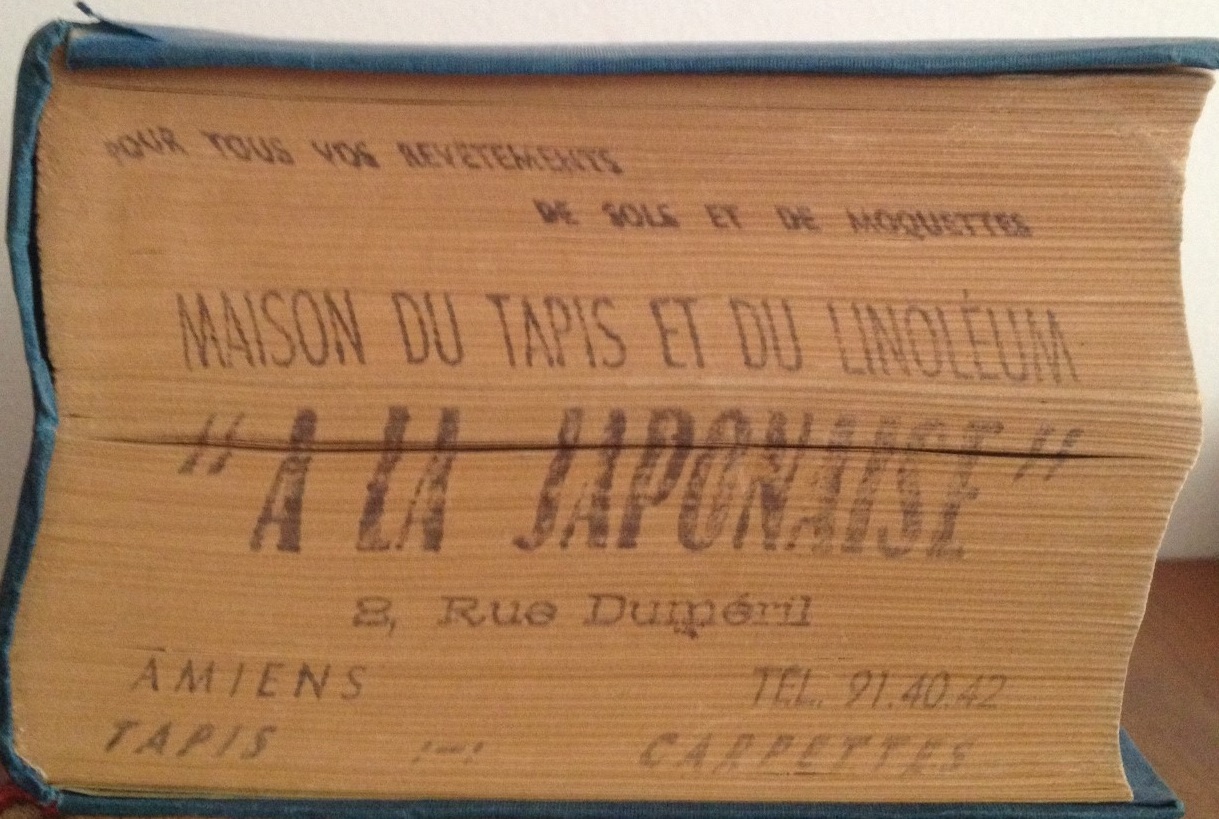 POUR TOUS VOS REVETEMENTS
DE SOLS ET DE MOQUETTES
MAISON DU TAPIS ET DU LINOLÉUM
"A LA JAPONAISE"
8, Rue Duméril
AMIENS TÉL. 91.40.42
TAPIS :—: CARPETTES